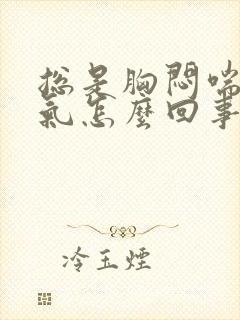 总是胸悶喘
氣怎麼回事
冷玉煙